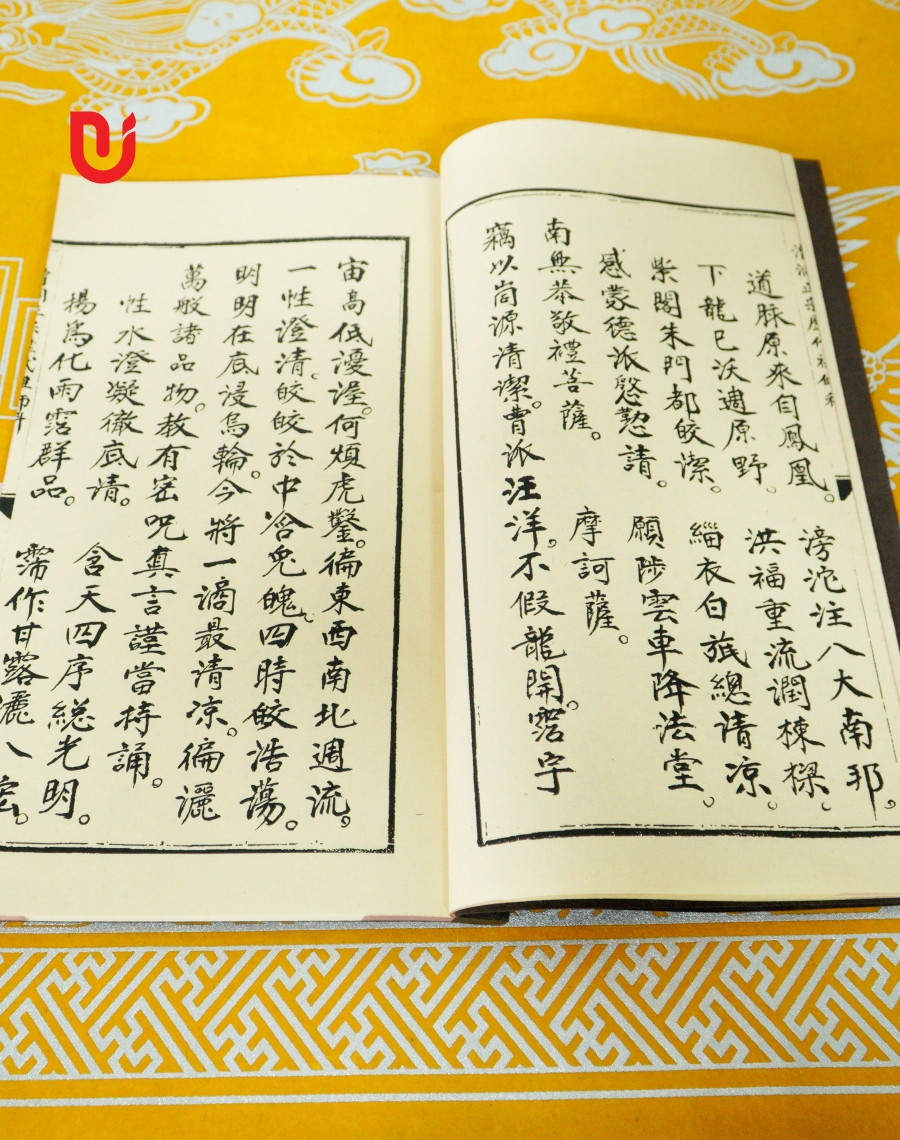 道脉原來自鳳凰。 滂沱注八大南邦。
下龍已沃週原野。 洪福重流潤棟樑。
紫閣朱門都皎潔。 緇衣白總清凉。
感蒙德派慇懃請。 願陟雲車降法堂。
南無恭敬禮菩薩。 摩訶薩。
竊以尚源清潔。曹派汪洋。不假龍開。霑宇
宙高低渥。何煩虎鑿。徧東西南北週流。
一性澄清。皎皎於中含兔魄。四時皎浩蕩。
明明在底浸烏輪。今將一滴最清凉。徧灑
萬般諸品物。教有密呪真言謹當持誦。
性水澄凝徹底清。 含天四序総光明。
楊為化雨霑群品。 霈作甘露灑八。